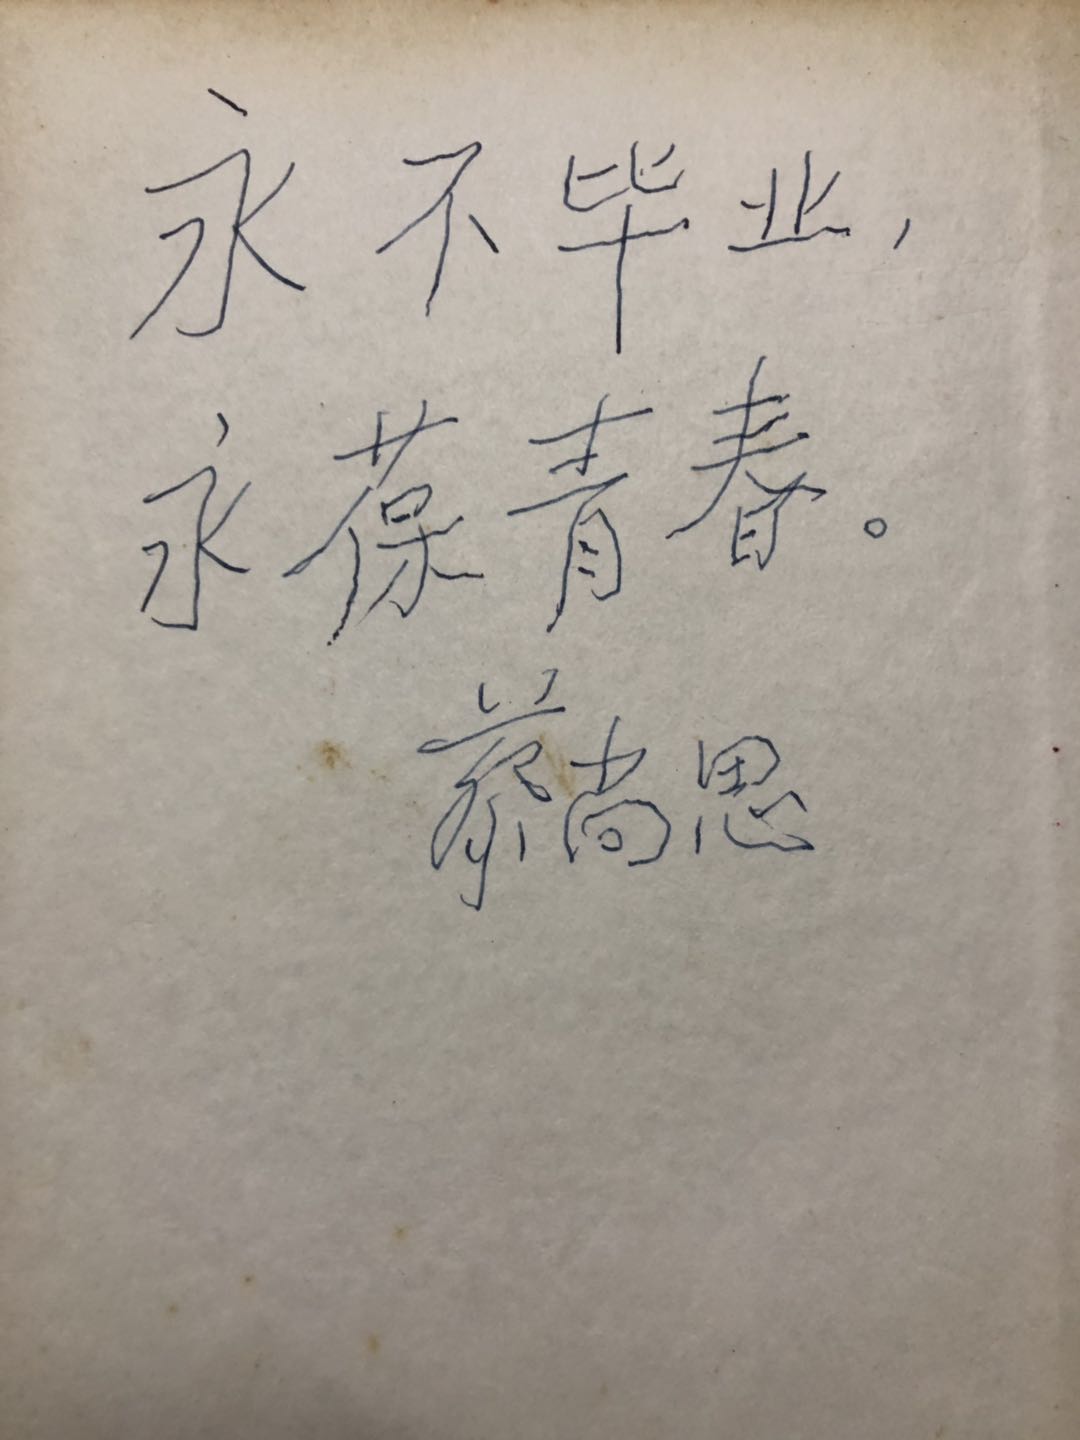 永不毕业，
永葆青春。
蔡尚思